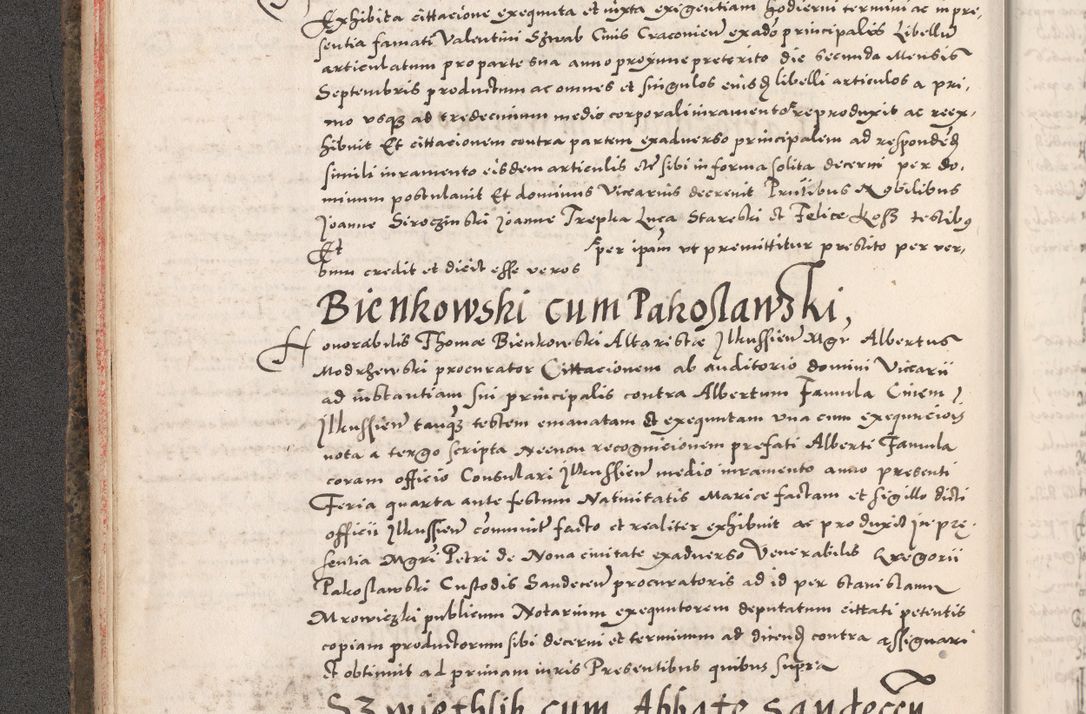 Exhibita cittacione exequuta et iuxta exegentiam hodierni termini ac in pre-
sentia famati Valentini Szwab Civis Cracovien exado principalis Libellu
articulatum pro parte sua anno proxime preterito die secunda Mensis
Septembris productum ac omnes et singulos eiusd libelli articulos a pri-
mo usq ad tredecimum medio corporali iuramento reproduxit ac reex-
hibuit Et cittacionem contra partem exadverso principalem ad responded
simili iuramento eisdem articulis etc sibi in forma solita decerni per do-
minum postulavit Et dominus Viccarius decrevit Pntibus Nobilibus
Joanne Siroczinski Joanne Trepka Luca Stareski et Felice Kosz testibus
Et per ipam ut premittitur prestito per ver-
bum credit et dicit esse veros
Bienkowski cum Pakoslawski,
Honorabilis Thomae Bienkowski Altaristae Jlkussien Mgr Albertus
Modrzewski procurator Cittacionem ab auditorio domini Viccarii
ad instantiam sui principalis contra Albertum Famula Civem J
Jlkussien tanq testem emanatam et exequutam una cum exequucionis
nota a tergo scripta Necnon recognicionem prefati Alberti Famula
coram officio Consulari Jlkussien medio iuramento anno presenti
Feria quarta ante festum Nativitatis Mariae factam et sigillo dicti
officii Jlkussien communit facto et realiter exhibuit ac produxit in prę-
sentia Mgri Petri de Nova civitate exadverso Venerabilis Gregorii
Pakoslawski Custodis Sandecen procuratoris ad id per Stanislaum
Mrowiczki publicum Notarium exequutorem deputatum cittati petentis
copiam productorum sibi decerni et terminum ad dicend contra assignari
et obtinuit ad primam iuris Presentibus quibus supra
Szwiethlik cum Abbate Sandecen